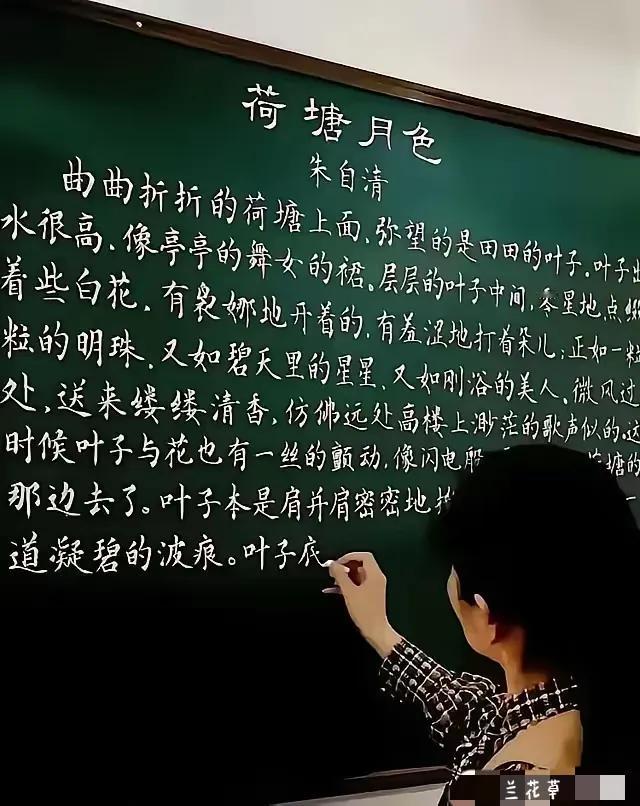 荷塘月色
朱自清
曲曲折折的荷塘上面,弥望的是田田的叶子。叶子出
水很高,像亭亭的舞女的裙。层层的叶子中间,零星地点缀
着些白花,有袅娜地开着的,有羞涩地打着朵儿;正如一粒
粒的明珠,又如碧天里的星星,又如刚浴的美人。微风过
处,送来缕缕清香,仿佛远处高楼上渺茫的歌声似的。这
时候叶子与花也有一丝的颤动,像闪电般 荷塘的
那边去了。叶子本是肩并肩密密地 一
道凝碧的波痕。叶子底
兰花草